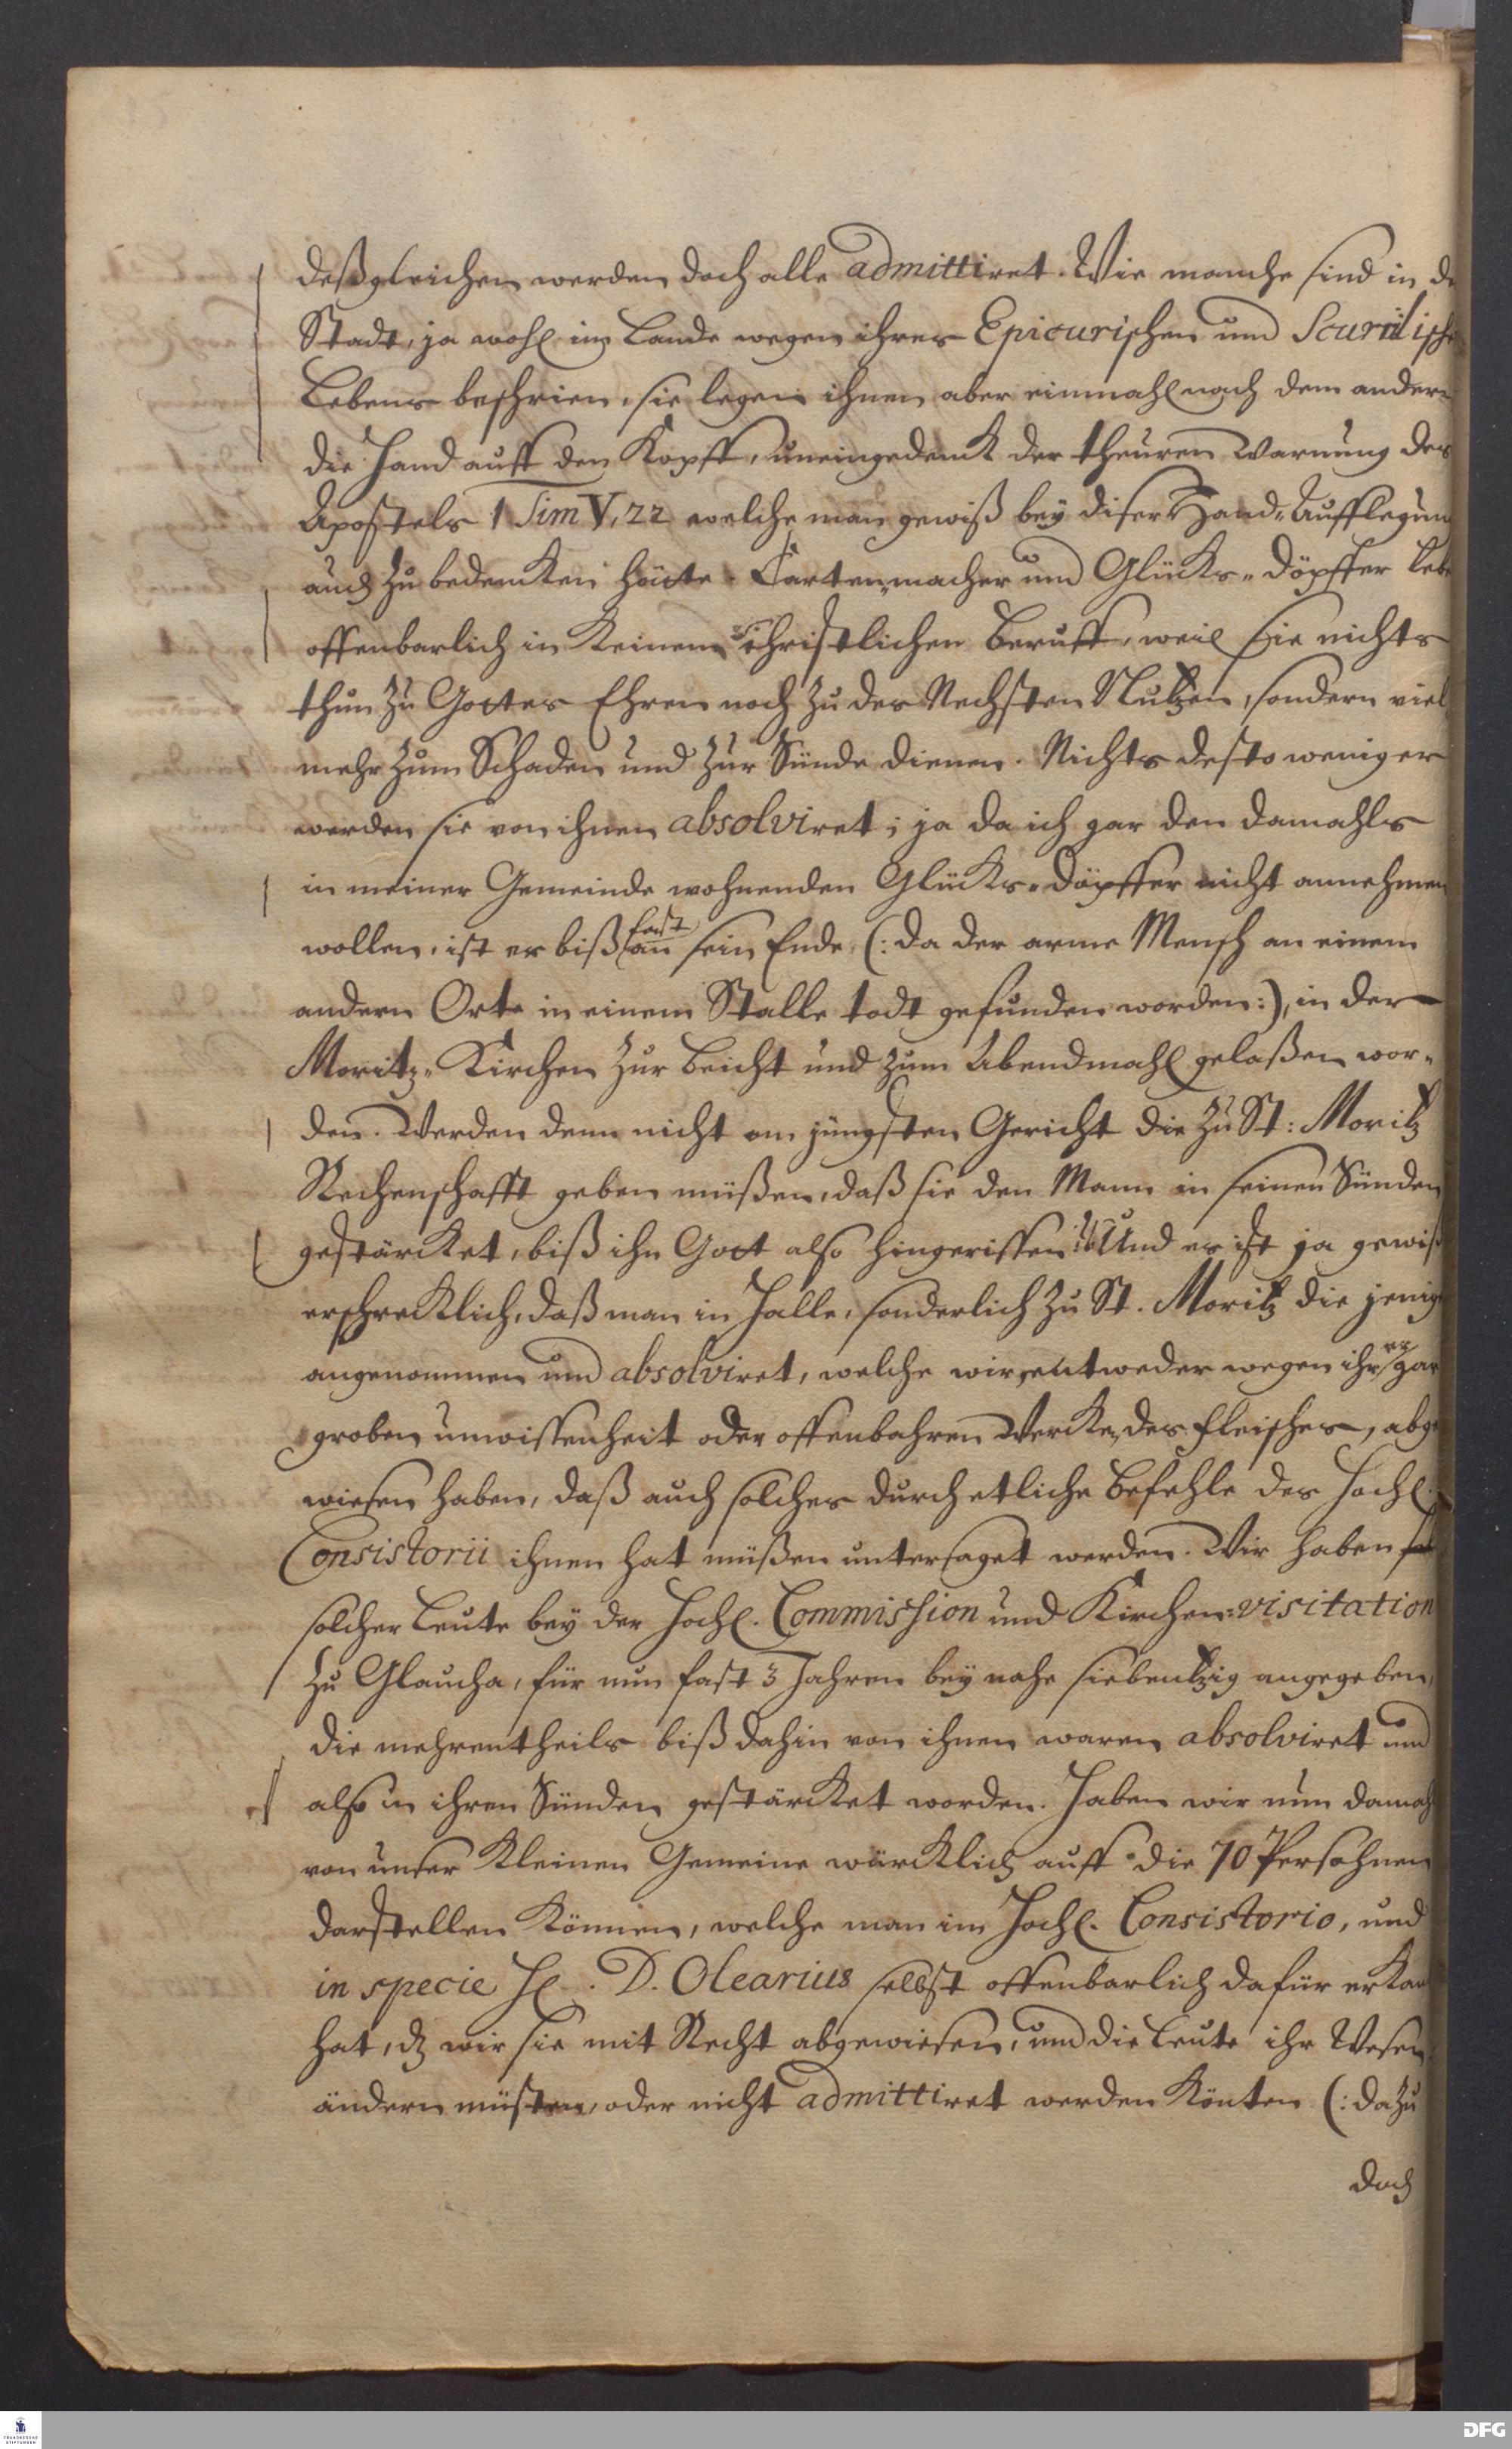 deßgleichen werden doch alle admittiret. Wie manche sind in de
Stadt, ja wohl im Lande wegen ihres Epicurischen und Scurrilische
Lebens beschrien, sie legen ihnen aber einmahl nach dem andern
die Hand auff den Kopff, uneingedenk der theuren Warnung des
Apostels 1 Tim V, 22 welche man gewiß bey diser Hand-Aufflegung
auch zu bedencken hätte. Cartenmacher und Glücks-Döpffer lebe
offenbarlich in keinem christlichen Beruff, weil sie nichts
thun zu Gottes Ehren noch zu des Nechsten Nutzen, sondern viel
mehr zum Schaden und zur Sünde dienen. Nichts desto weniger
werden sie von ihnen absolviret; ja da ich gar den damahls
in meiner Gemeinde wohnenden Glücks-Döpffer nicht annehmen
wollen, ist er biß fast an sein Ende (: da der arme Mensch an einem
andern Orte in einem Stalle todt gefunden worden:), in der
Moritz-Kirchen zur Beicht und zum Abendmahl gelaßen wor-
den. Werden denn nicht am jüngsten Gericht die zu St: Moritz
Rechenschafft geben müßen, daß sie den Mann in seinen Sünden
gestärcket, biß ihn Gott also hingerissen? Und es ist ja gewiß
erschrecklich, daß man in Halle, sonderlich zu St. Moritz die jenige
angenommen und absolviret, welche wir entweder wegen ihrer gar
groben unwissenheit oder offenbahren Wercke des Fleisches, abge
wiesen haben, daß auch solches durch etliche Befehle des Hochl.
Consistorii ihnen hat müßen untersaget werden. Wir haben
solcher Leute bey der Hochl. Commission und Kirchen-visitation
zu Glaucha, für nun fast 3 Jahren bey nahe siebentzig angegeben,
die mehrentheils biß dahin von ihnen waren absolviret und
also in ihren Sünden gestärcket worden. Haben wir nun damah
von unser kleinen Gemeine würcklich auff die 70 Persohnen
darstellen können, welche man im Hochl. Consistorio, und
in specie H. D. Olearius selbst offenbarlich dafür erkan
hat, dz wir sie mit Recht abgewiesen, und die Leute ihr Wesen
ändern müsten, oder nicht admittiret werden könten (: dazu
doch
FRANCKESCHE STIFTUNGEN
DFG